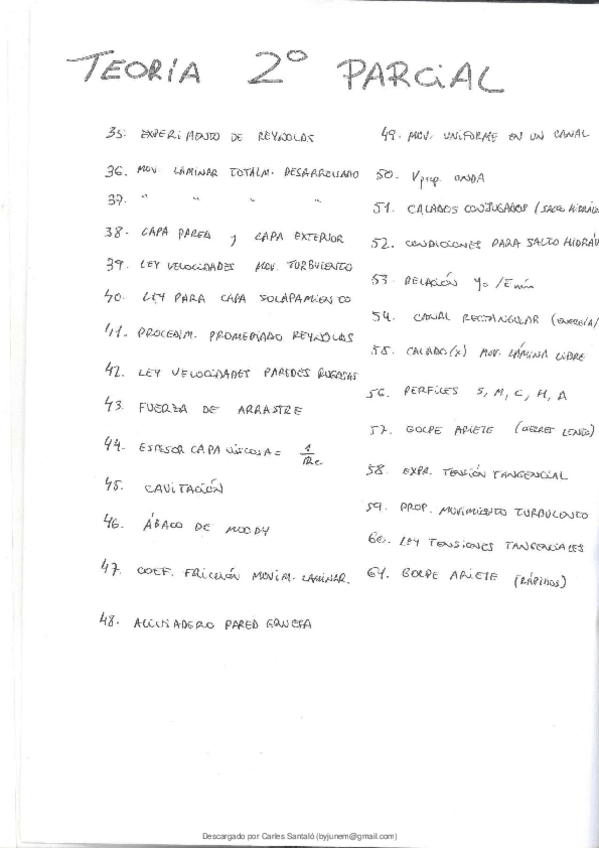 TEORÍA 2º PARCIAL
35. EXPERIMENTO DE REYNOLDS
36. MOV. LAMINAR TOTALM. DESARROLLADO
37. " " " "
38. CAPA PARED y CAPA EXTERIOR
39. LEY VELOCIDADES MOV. TURBULENTO
40. LEY PARA CAPA SOLAPAMIENTO
41. PROCEDIM. PROMEDIADO REYNOLDS
42. LEY VELOCIDADES PAREDES RUGOSAS
43. FUERZA DE ARRASTRE
44. ESPESOR CAPA VISCOSA =
45. CAVITACIÓN
46. ÁBACO DE MOODY
47. COEF. FRICCIÓN MOVIM. LAMINAR.
48. ALIVIADERO PARED GRUESA
49. MOV. UNIFORME EN UN CANAL
50. Vprop. ONDA
51. CALADOS CONJUGADOS (SALTO HIDRÁU
52. CONDICIONES PARA SALTO HIDRÁU
53. RELACIÓN y0/Emin
54. CANAL RECTANGULAR (ENERGÍA/
55. CALADO(x) MOV. LÁMINA LIBRE
56. PERFILES S, M, C, H, A
57. GOLPE ARIETE (CIERRE LENTO)
58. EXPR. TENSIÓN TANGENCIAL
59. PROP. MOVIMIENTO TURBULENTO
60. LEY TENSIONES TANGENCIALES
61. GOLPE ARIETE (RÁPIDOS)
Descargado por Carles Santaló (byjunem@gmail.com)